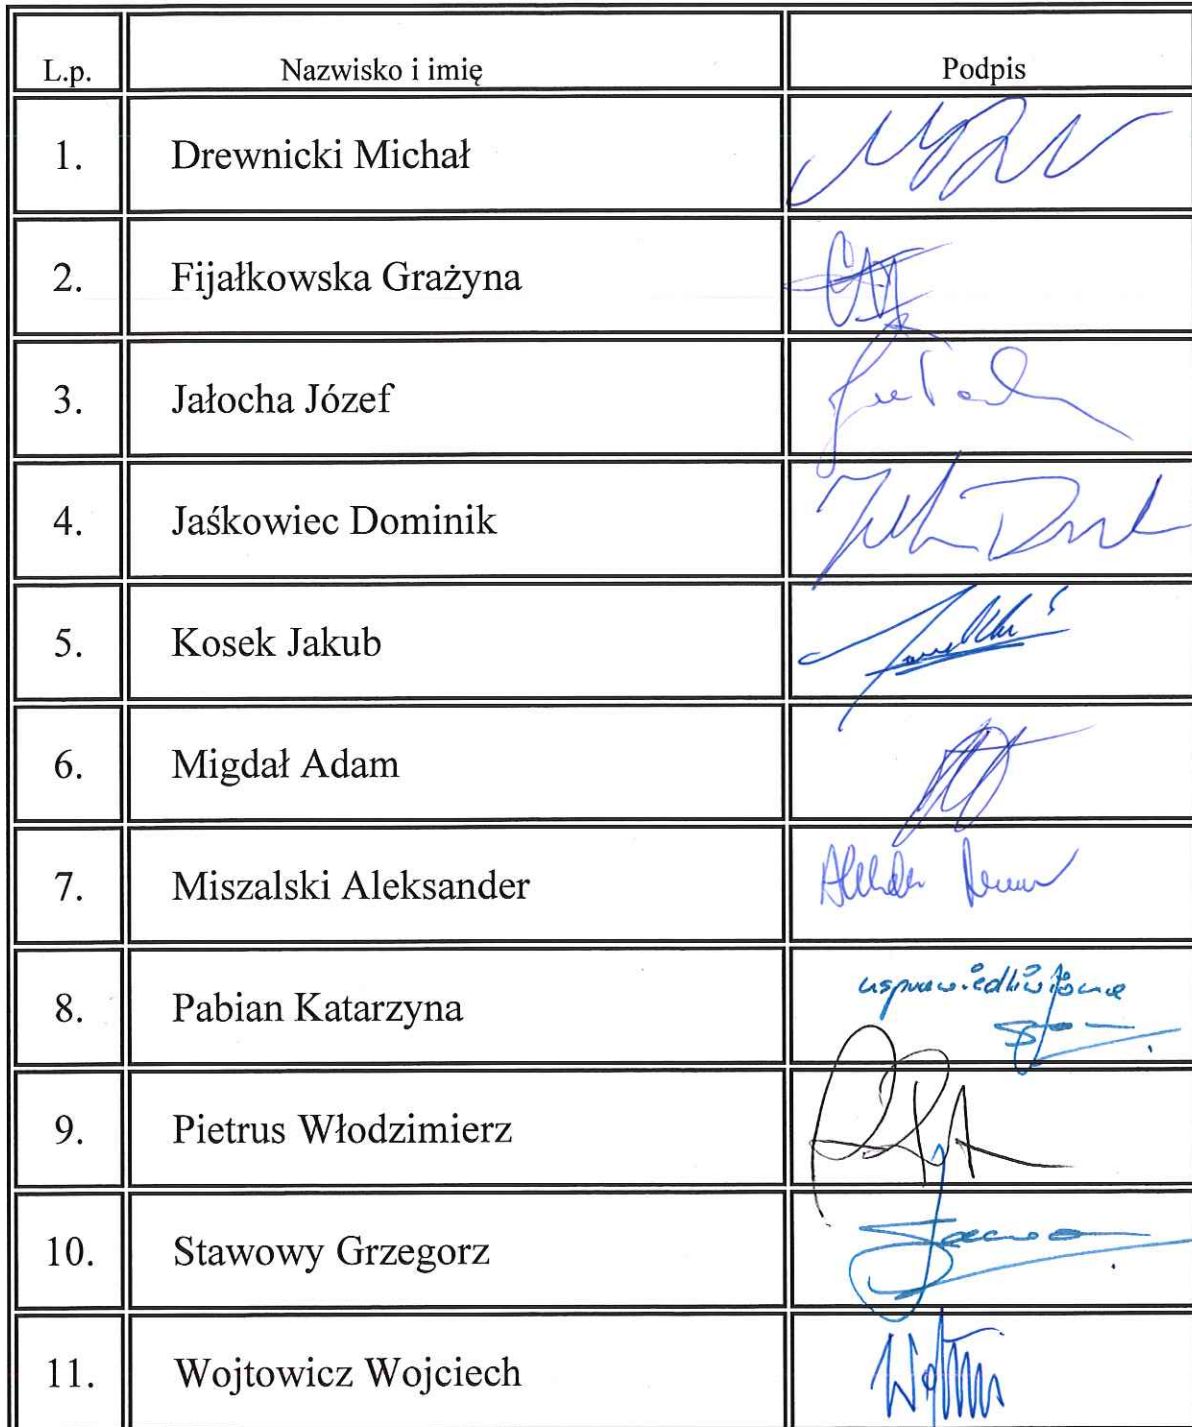 L.p. Nazwisko i imię Podpis
1. Drewnicki Michał
2. Fijałkowska Grażyna
3. Jałocha Józef
4. Jaśkowiec Dominik
5. Kosek Jakub
6. Migdał Adam
7. Miszalski Aleksander
8. Pabian Katarzyna usprawiedliwiona
9. Pietrus Włodzimierz
10. Stawowy Grzegorz
11. Wojtowicz Wojciech